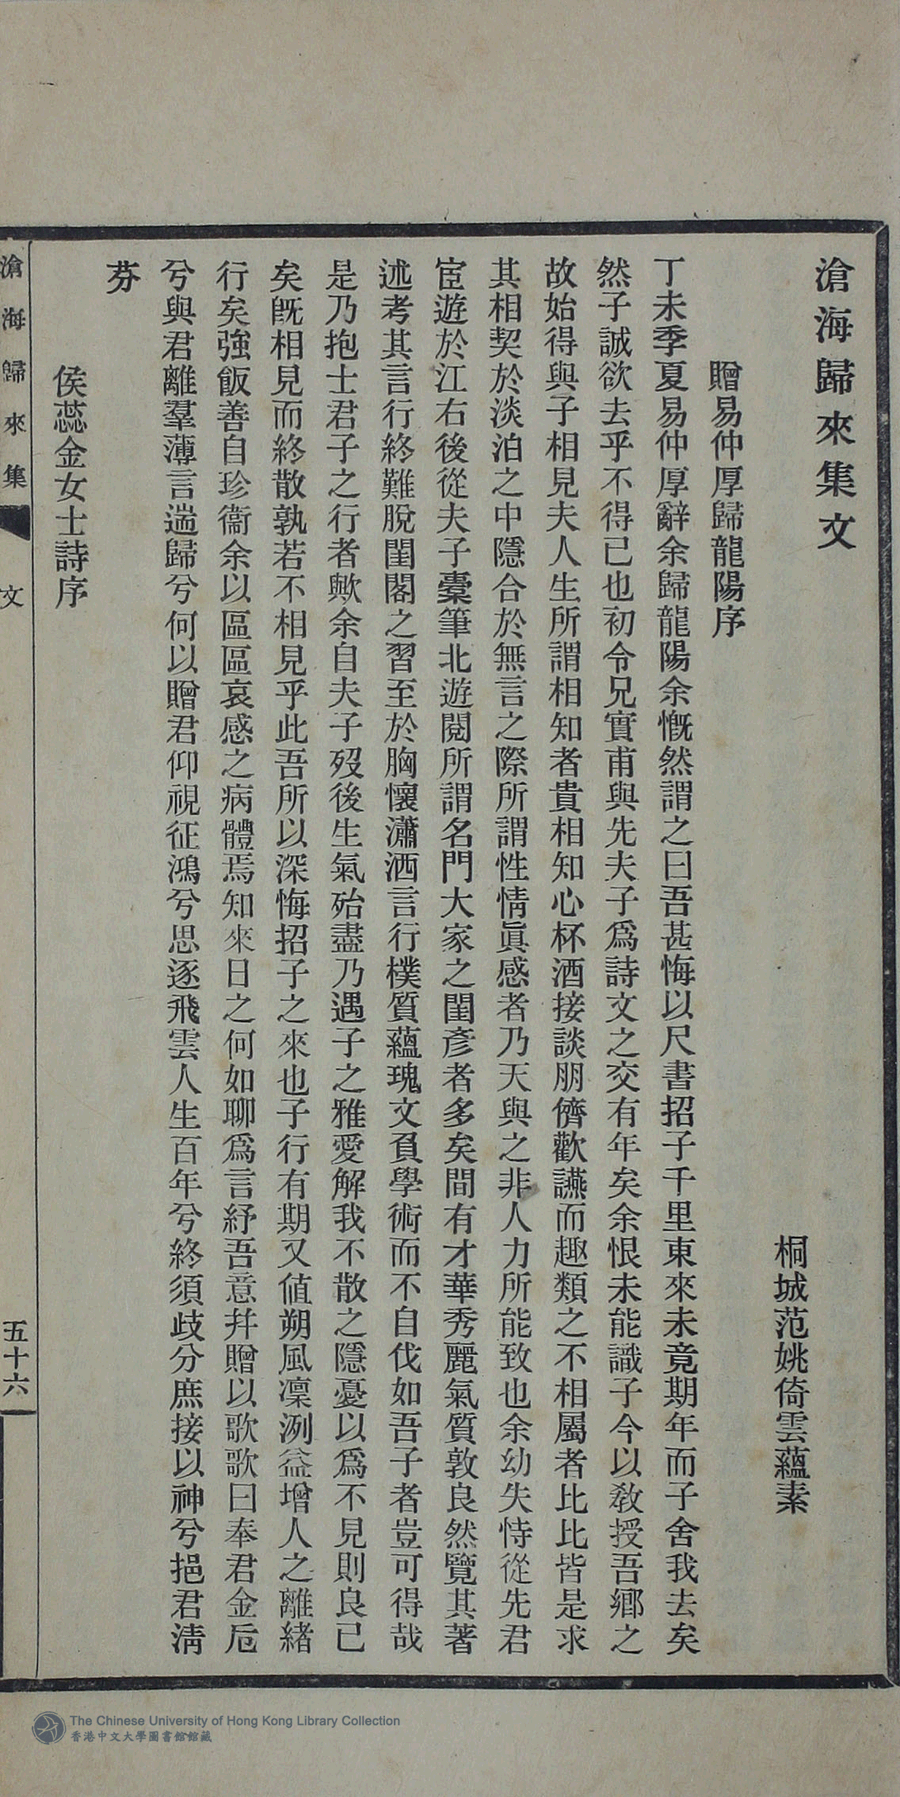 滄海歸來集文
桐城范姚倚雲蘊素
贈易仲厚歸龍陽序
丁未季夏易仲厚辭余歸龍陽余慨然謂之曰吾甚悔以尺書招子千里東來未竟期年而子舍我去矣
然子誠欲去乎不得已也初令兄實甫與先夫子爲詩文之交有年矣余恨未能識子今以敎授吾鄉之
故始得與子相見夫人生所謂相知者貴相知心杯酒接談朋儕歡讌而趣類之不相屬者比比皆是求
其相契於淡泊之中隱合於無言之際所謂性情眞感者乃天與之非人力所能致也余幼失恃從先君
宦遊於江右後從夫子橐筆北遊閱所謂名門大家之閨彥者多矣間有才華秀麗氣質敦良然覽其著
述考其言行終難脫閨閣之習至於胸懷瀟洒言行樸質蘊瑰文負學術而不自伐如吾子者豈可得哉
是乃抱士君子之行者歟余自夫子歿後生氣殆盡乃遇子之雅愛解我不散之隱憂以爲不見則良已
矣旣相見而終散孰若不相見乎此吾所以深悔招子之來也子行有期又値朔風凜洌益增人之離緒
行矣強飯善自珍衞余以區區哀感之病體焉知來日之何如聊爲言紓吾意幷贈以歌歌曰奉君金卮
兮與君離羣薄言遄歸兮何以贈君仰視征鴻兮思逐飛雲人生百年兮終須歧分庶接以神兮挹君淸
芬
侯蕊金女士詩序
滄海歸來集 文 五十六
The Chinese University of Hong Kong Library Collection
香港中文大學圖書館館藏